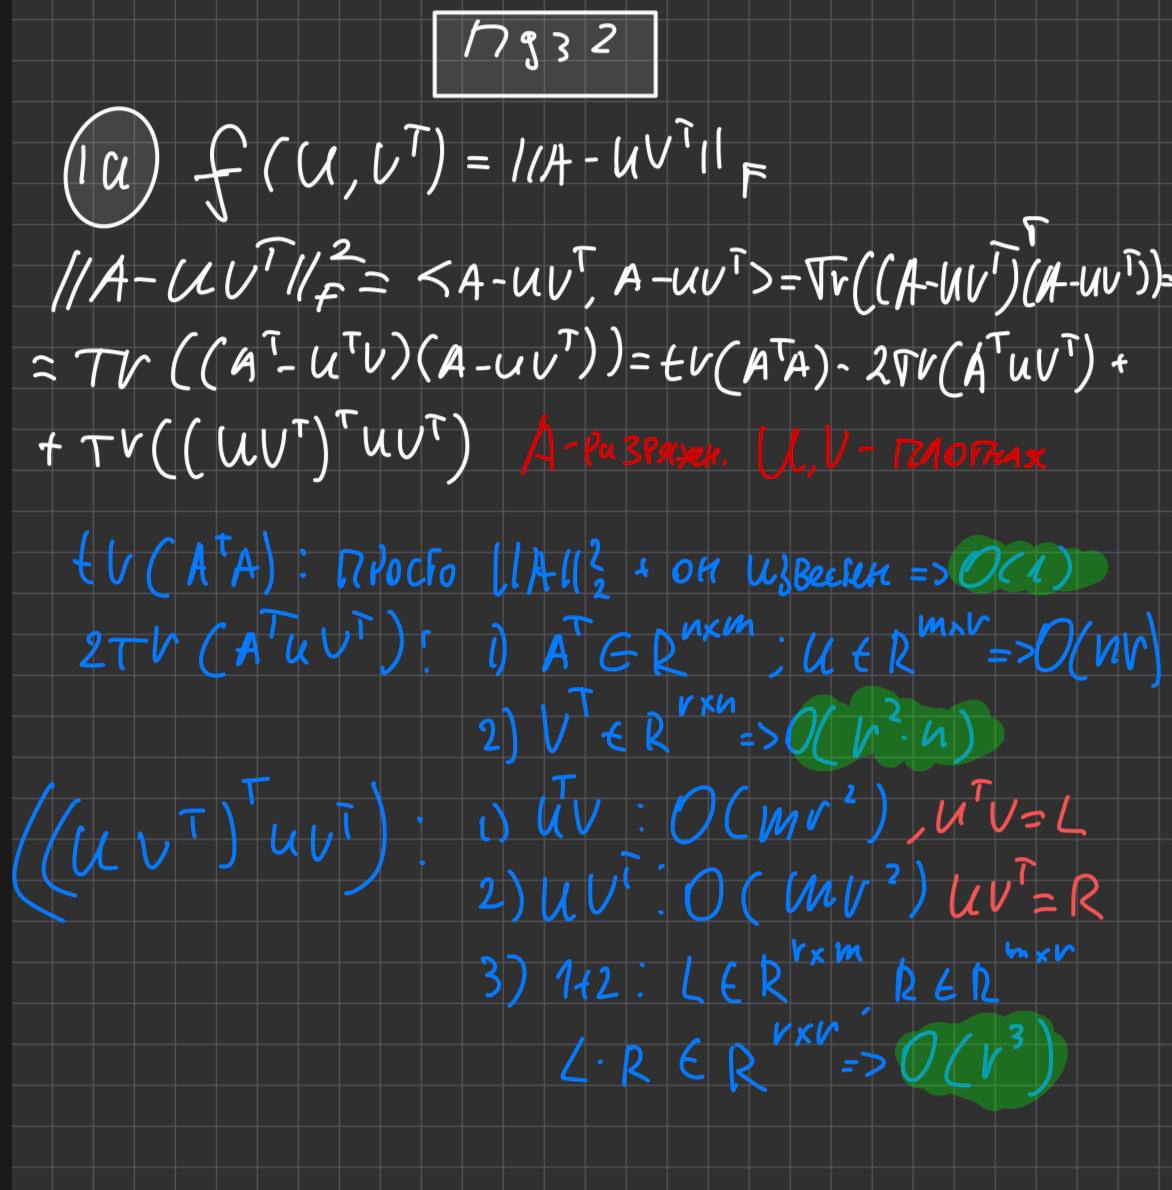 ПДЗ 2
1а f(U, V^T) = ||A - UV^T||_F
||A - UV^T||_F^2 = <A - UV^T, A - UV^T> = Tr((A - UV^T)^T(A - UV^T)) =
= Tr((A^T - U^T V)(A - UV^T)) = tr(A^T A) - 2Tr(A^T UV^T) +
+ Tr((UV^T)^T UV^T) A - разряжен. U, V - плотная
tr(A^T A): просто ||A||_2^2 + он известен => O(1)
2Tr(A^T U V^T): 1) A^T ∈ R^{n×m}; U ∈ R^{m×r} => O(nr)
2) V^T ∈ R^{r×n} => O(r^2·n)
((UV^T)^T UV^T): 1) U^T V: O(mr^2), U^T V = L
2) UV^T: O(mr^2) UV^T = R
3) 1+2: L ∈ R^{r×m}, R ∈ R^{m×r}
L·R ∈ R^{r×r} => O(r^3)